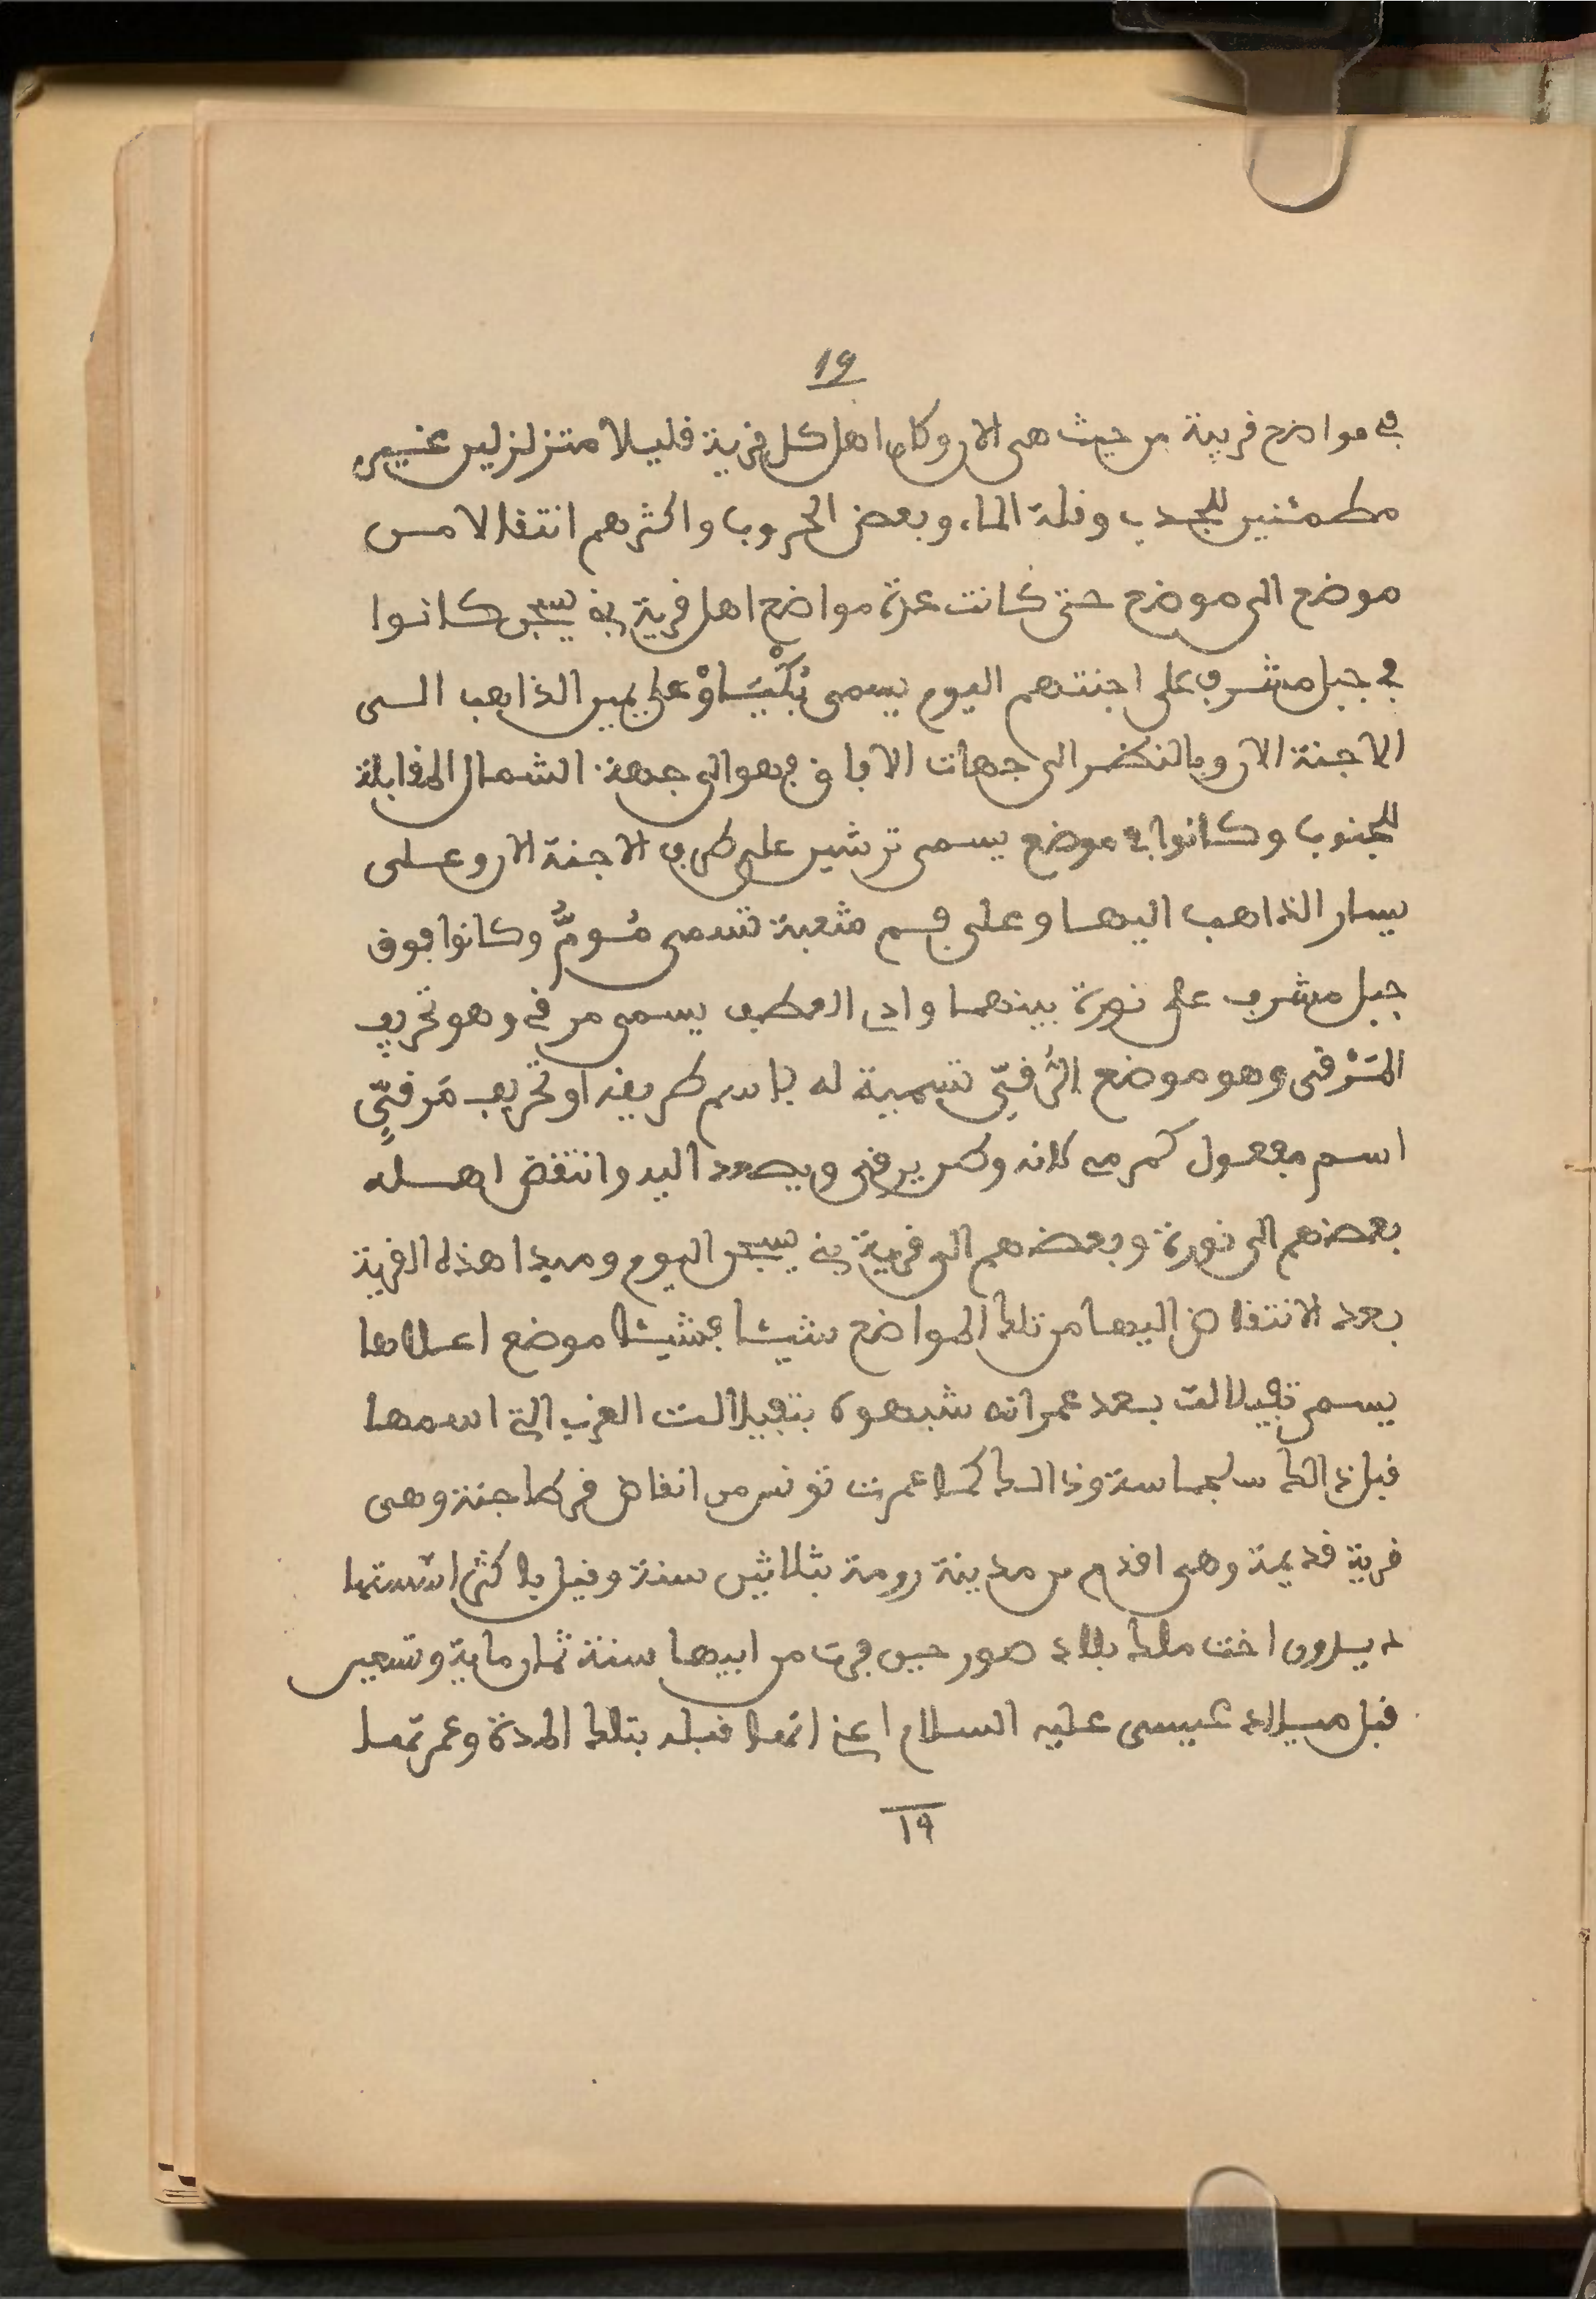 19
في مواضع قريبة من حيث هي الان وكان اهل كل قرية قليلا متزلزلين غير
مطمئنين للجدب وقلة الماء، وبعض الحروب واكثرهم انتقالا من
موضع الى موضع حتى كانت عدة مواضع اهل قرية بني يسجن كانوا
في جبل مشرف على اجنتهم اليوم يسمى بُكْيَاوْ على يمين الذاهب الى
الاجنة الان وبالنظر الى جهات الافاق فهو الى جهة الشمال المقابلة
للجنوب وكانوا في موضع يسمى ترشين على طرف الاجنة الان وعلى
يسار الذاهب اليها وعلى فم شعبة تسمى مُومُّ وكانوا فوق
جبل مشرف على نورة بينهما وادي العطف يسمى مرقى وهو تحريف
المَرْقى وهو موضع الرُقيّ تسمية له باسم طريقه او تحريف مَرقيٍّ
اسم مفعول كمرمي كانه وكر يرقى ويصعد اليه وانتقض اهله
بعضهم الى نورة وبعضهم الى قرية بني يسجن اليوم ومبدا هذه القرية
بعد الانتقاض اليها من تلك المواضع شيئا فشيئا موضع اعلاها
يسمى تفيلالت بعد عمرانه شبهوه بتفيلالت الغرب التي اسمها
قبل ذالك سلجماسة وذالك كما عمرت تونس من انقاض قرطاجنة وهي
قرية قديمة وهي اقدم من مدينة رومة بثلاثين سنة وقيل باكثر اسّستها
ديدون اخت ملك بلاد صور حين فرت من ابيها سنة ثمان ماية وتسعين
قبل ميلاد عيسى عليه السلام اعني انها قبله بتلك المدة وعمرتها
19